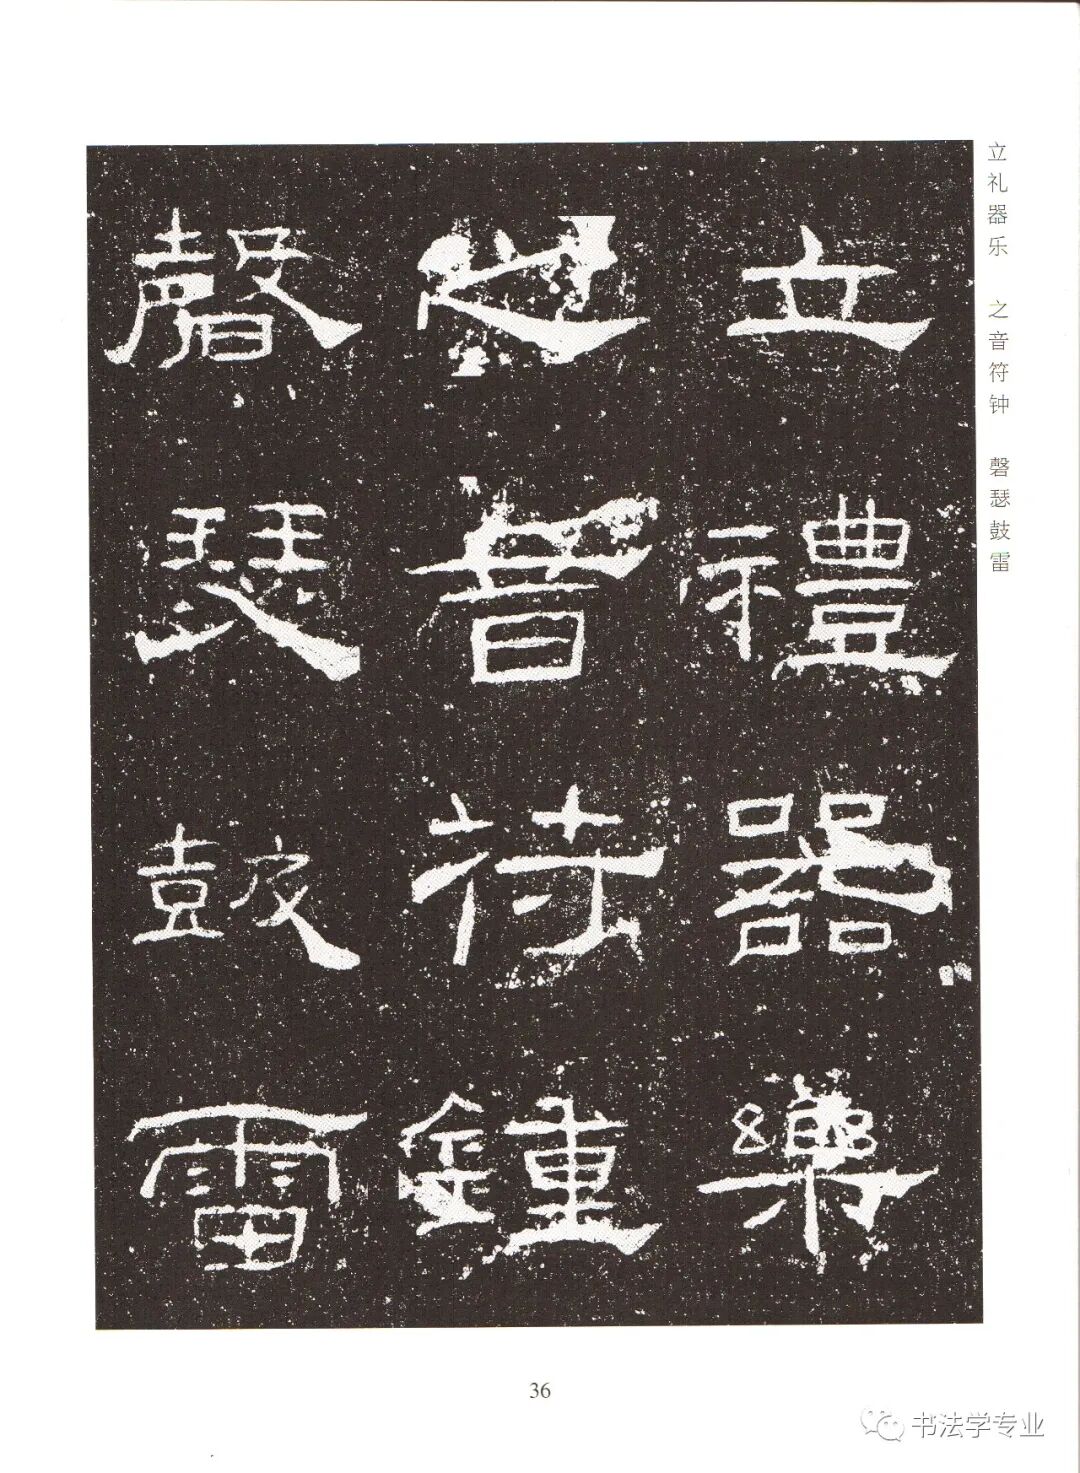 立禮器樂
之音符鍾
磬瑟鼓雷
立礼器乐 之音符钟 磬瑟鼓雷
36
书法学专业